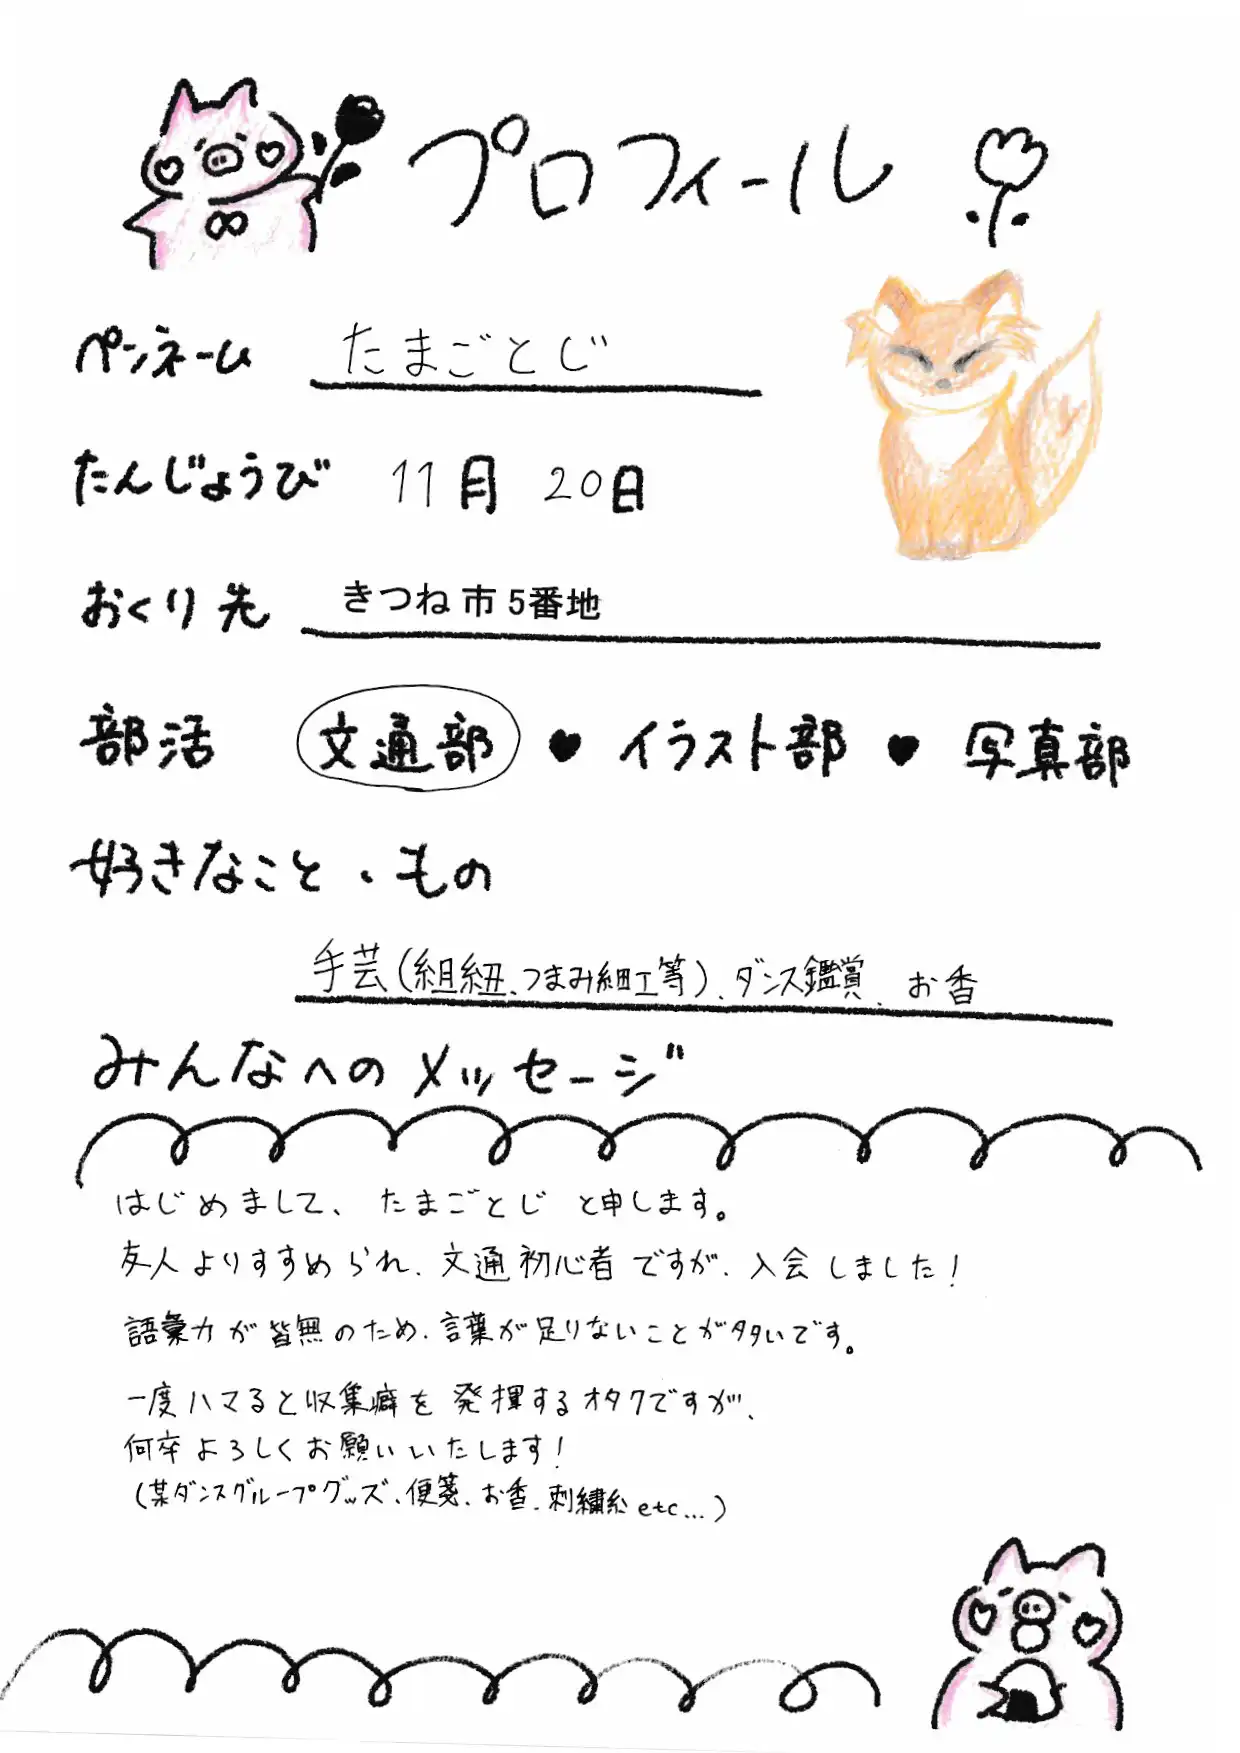 プロフィール
ペンネーム たまごとじ
たんじょうび 11月 20日
おくり先 きつね市5番地
部活 文通部 ♥ イラスト部 ♥ 写真部
好きなこと・もの
手芸(組紐、つまみ細工等)、ダンス鑑賞、お香
みんなへのメッセージ
はじめまして、たまごとじ と申します。
友人よりすすめられ、文通初心者ですが、入会しました!
語彙力が皆無のため、言葉が足りないことが多いです。
一度ハマると収集癖を発揮するオタクですが、
何卒よろしくお願いいたします!
(某ダンスグループグッズ、便箋、お香、刺繍糸etc...)